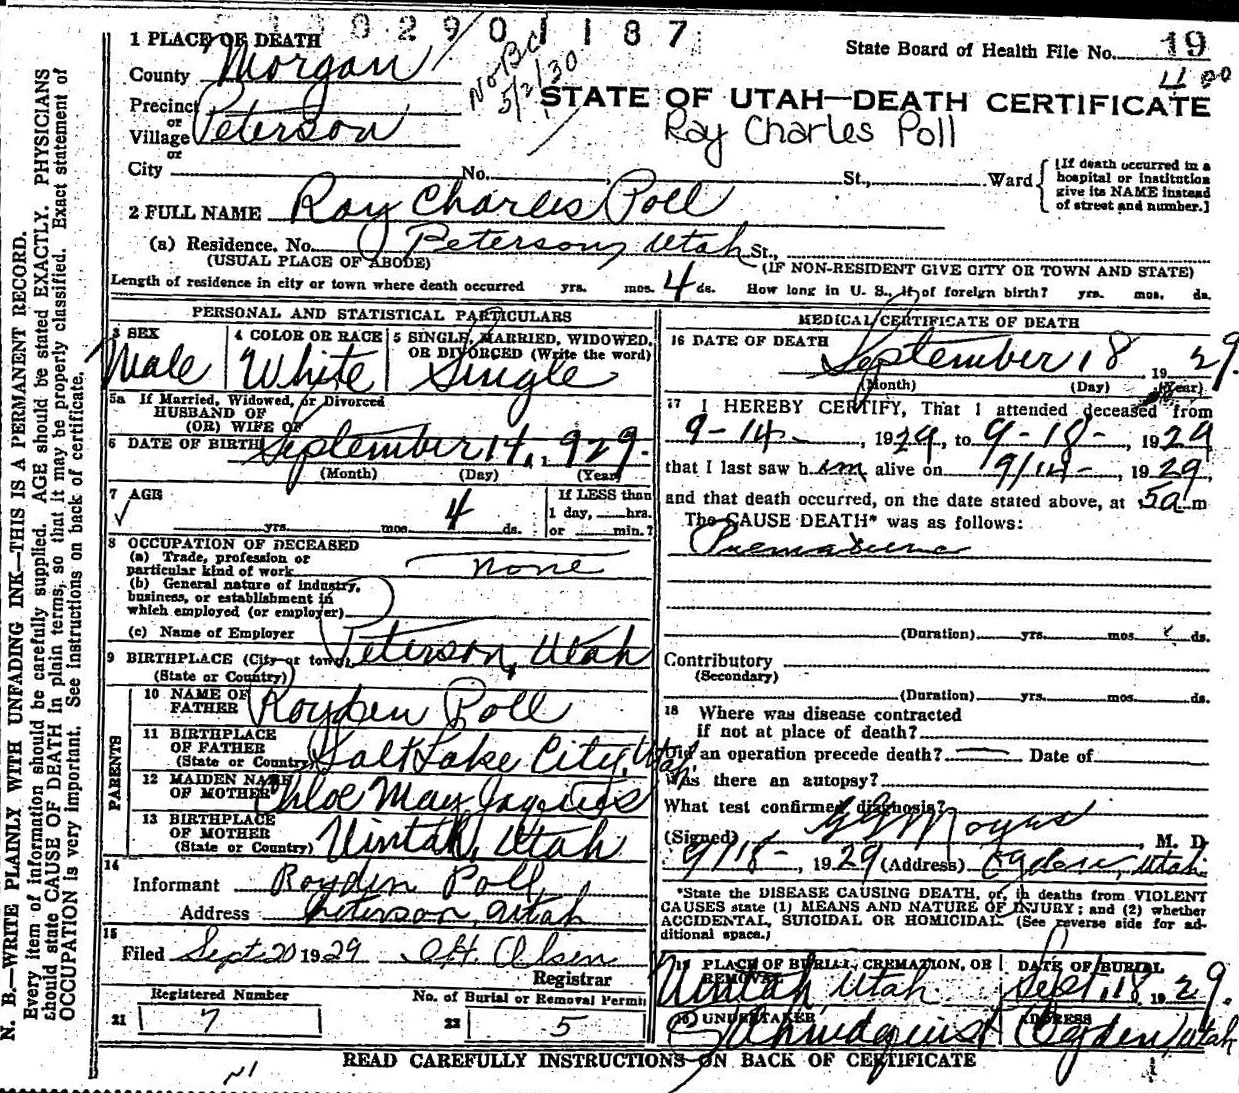 82901187
1 PLACE OF DEATH
State Board of Health File No. 19
County Morgan
No BC 5/2/30
4 00
STATE OF UTAH—DEATH CERTIFICATE
Precinct or Village Peterson
Ray Charles Poll
or
City No. St., Ward
[If death occurred in a hospital or institution give its NAME instead of street and number.]
2 FULL NAME Ray Charles Poll
(a) Residence. No. Peterson, Utah St.,
(USUAL PLACE OF ABODE) (IF NON-RESIDENT GIVE CITY OR TOWN AND STATE)
Length of residence in city or town where death occurred yrs. mos. 4 ds. How long in U. S., if of foreign birth? yrs. mos. ds.
PERSONAL AND STATISTICAL PARTICULARS
3 SEX
Male
4 COLOR OR RACE
White
5 SINGLE, MARRIED, WIDOWED,
OR DIVORCED (Write the word)
Single
5a If Married, Widowed, or Divorced
HUSBAND OF
(OR) WIFE OF
6 DATE OF BIRTH September 14, 1929.
(Month) (Day) (Year)
7 AGE
yrs. mos. 4 ds.
If LESS than
1 day, hrs.
or min.?
8 OCCUPATION OF DECEASED
(a) Trade, profession or
particular kind of work none
(b) General nature of industry,
business, or establishment in
which employed (or employer)
(c) Name of Employer
9 BIRTHPLACE (City or town) Peterson, Utah
(State or Country)
PARENTS
10 NAME OF
FATHER Royden Poll
11 BIRTHPLACE
OF FATHER
(State or Country) Salt Lake City, Utah
12 MAIDEN NAME
OF MOTHER Chloe May Jaques
13 BIRTHPLACE
OF MOTHER
(State or Country) Uintah, Utah
14
Informant Royden Poll
Address Peterson, Utah
15
Filed Sept 20 1929 Olsen
Registrar
Registered Number
21 7
No. of Burial or Removal Permit
22 5
MEDICAL CERTIFICATE OF DEATH
16 DATE OF DEATH
September 18 1929.
(Month) (Day) (Year)
17 I HEREBY CERTIFY, That I attended deceased from
9-14-, 1929, to 9-18-, 1929
that I last saw him alive on 9/14-, 1929,
and that death occurred, on the date stated above, at 5a m
The CAUSE DEATH* was as follows:
(Duration) yrs. mos. ds.
Contributory
(Secondary)
(Duration) yrs. mos. ds.
18 Where was disease contracted
if not at place of death?
Did an operation precede death? Date of
Was there an autopsy?
What test confirmed diagnosis?
(Signed) M. D.
9/18-, 1929 (Address) Ogden, Utah.
*State the DISEASE CAUSING DEATH, or, in deaths from VIOLENT
CAUSES state (1) MEANS AND NATURE OF INJURY; and (2) whether
ACCIDENTAL, SUICIDAL OR HOMICIDAL. (See reverse side for ad-
ditional space.)
19 PLACE OF BURIAL, CREMATION, OR
REMOVAL
Uintah Utah
DATE OF BURIAL
Sept. 18 1929.
20 UNDERTAKER
ADDRESS
Ogden, Utah
READ CAREFULLY INSTRUCTIONS ON BACK OF CERTIFICATE
N. B.—WRITE PLAINLY WITH UNFADING INK—THIS IS A PERMANENT RECORD.
Every item of information should be carefully supplied. AGE should be stated EXACTLY. PHYSICIANS
should state CAUSE OF DEATH in plain terms, so that it may be properly classified. Exact statement of
OCCUPATION is very important. See instructions on back of certificate.